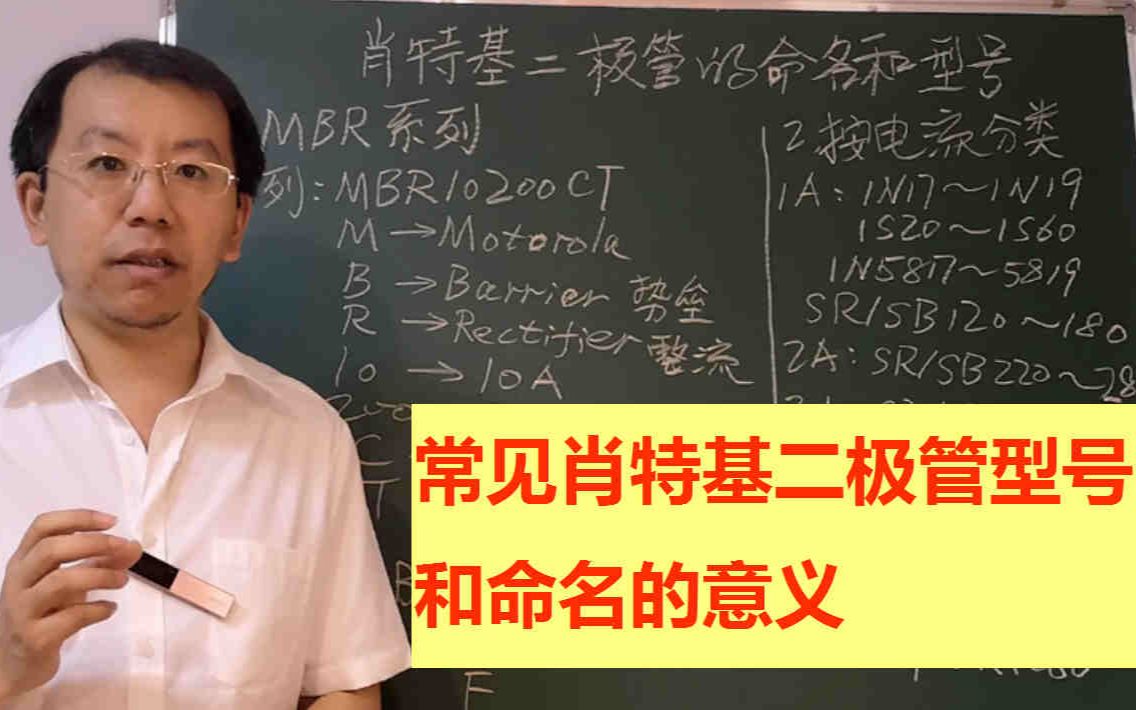 肖特基二极管的命名和型号
MBR系列
列:MBR10200CT
M→Motorola
B→Barrier 势垒
R→Rectifier 整流
10→10A
200
C
T
2按电流分类
1A:1N17~1N19
1S20~1S60
1N5817~5819
SR/SB120~180
2A:SR/SB220~28
常见肖特基二极管型号
和命名的意义
F